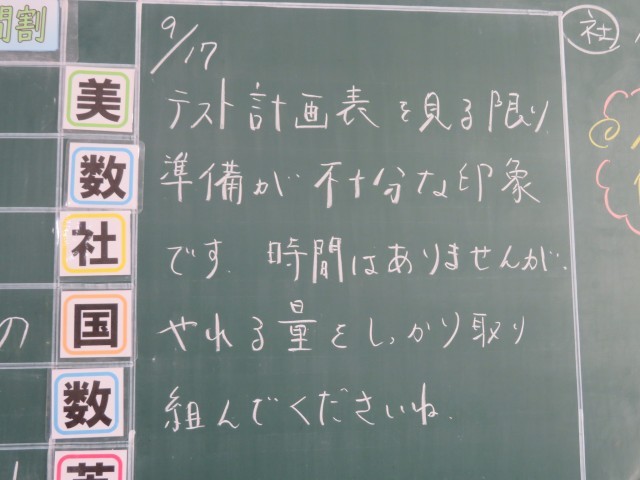 間割
美
数
社
国
数
英
の
9/17
テスト計画表を見る限り
準備が不十分な印象
です.時間はありませんが.
やれる量をしっかり取り
組んでくださいね.
社